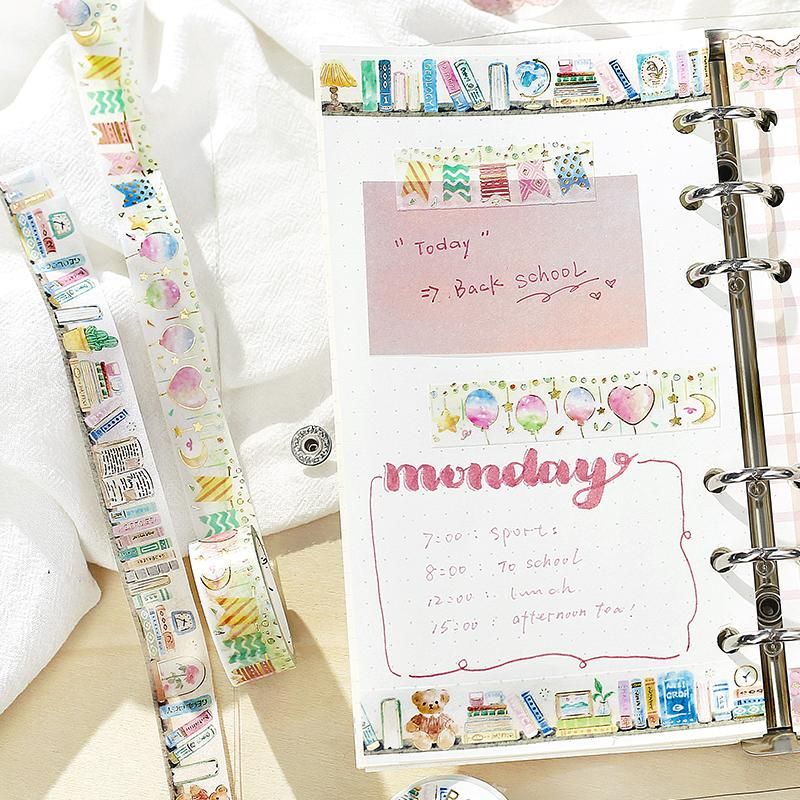 GEOLOGY
" Today "
=> Back school
monday
7:00 : sports
8:00 : To school
12:00 : lunch
15:00 : afternoon tea!